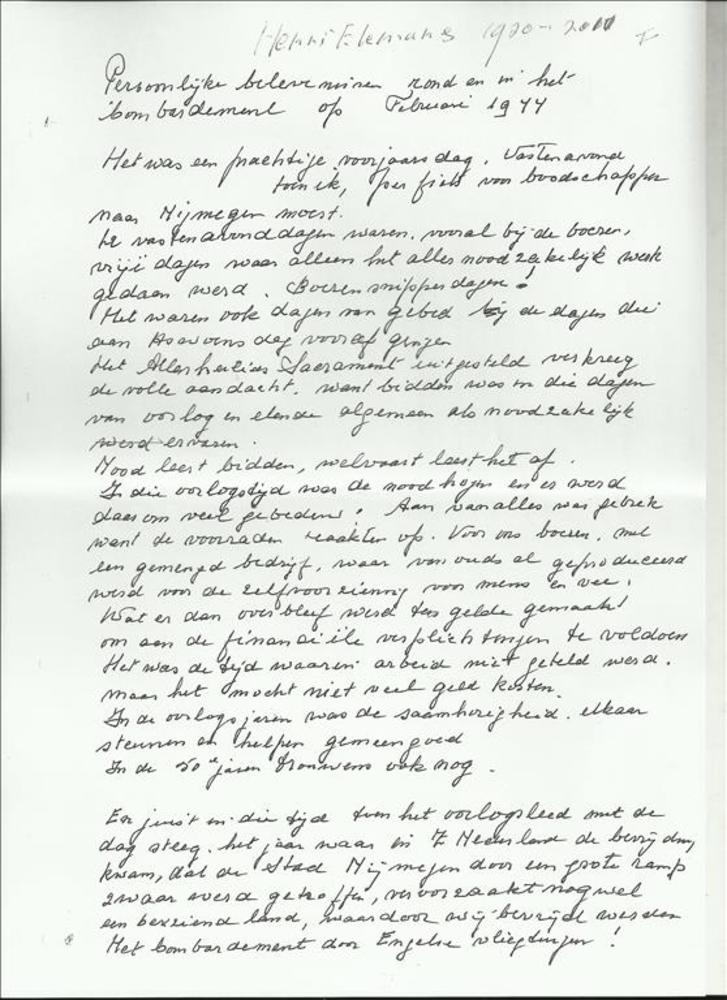 Henri Elemans 1920-2010 I
Persoonlijke belevenissen rond en in het
bombardement op Februari 1944
Het was een prachtige voorjaarsdag. Vastenavond
toen ik, per fiets voor boodschappen
naar Nijmegen moest.
De vastenavonddagen waren, vooral bij de boeren,
vrije dagen waar alleen het alles noodzakelijk werk
gedaan werd. Boeren snipperdagen!
Het waren ook dagen van gebed bij de dagen die
aan Aswoensdag vooraf gingen
Het Allerheiligs Sacrament uitgesteld verkreeg
de volle aandacht, want bidden was in die dagen
van oorlog en elende algemeen als noodzakelijk
werd ervaren.
Nood leert bidden, welvaart leert het af.
In die oorlogstijd was de nood hogen en er werd
daarom veel gebeden. Aan van alles was gebrek
want de voorraden raakten op. Voor ons boeren, met
een gemengd bedrijf, waar van ouds al geproduceerd
werd voor de zelfvoorziening voor mens en vee.
Wat er dan overbleef werd ten gelde gemaakt
om aan de financiële verplichtingen te voldoen
Het was de tijd waarin arbeid niet geteld werd.
maar het mocht niet veel geld kosten.
In de oorlogsjaren was de saamhorigheid. elkaar
steunen en helpen gemeengoed
In de 50er jaren trouwens ook nog.
En juist in die tijd toen het oorlogsleed met de
dag steeg. het jaar waar in Z Nederland de bevrijding
kwam, dat de Stad Nijmegen door een grote ramp
zwaar werd getroffen, veroorzaakt nog wel
een bevriend land, waardoor wij bevrijd werden
Het bombardement door Engelse vliegtuigen!